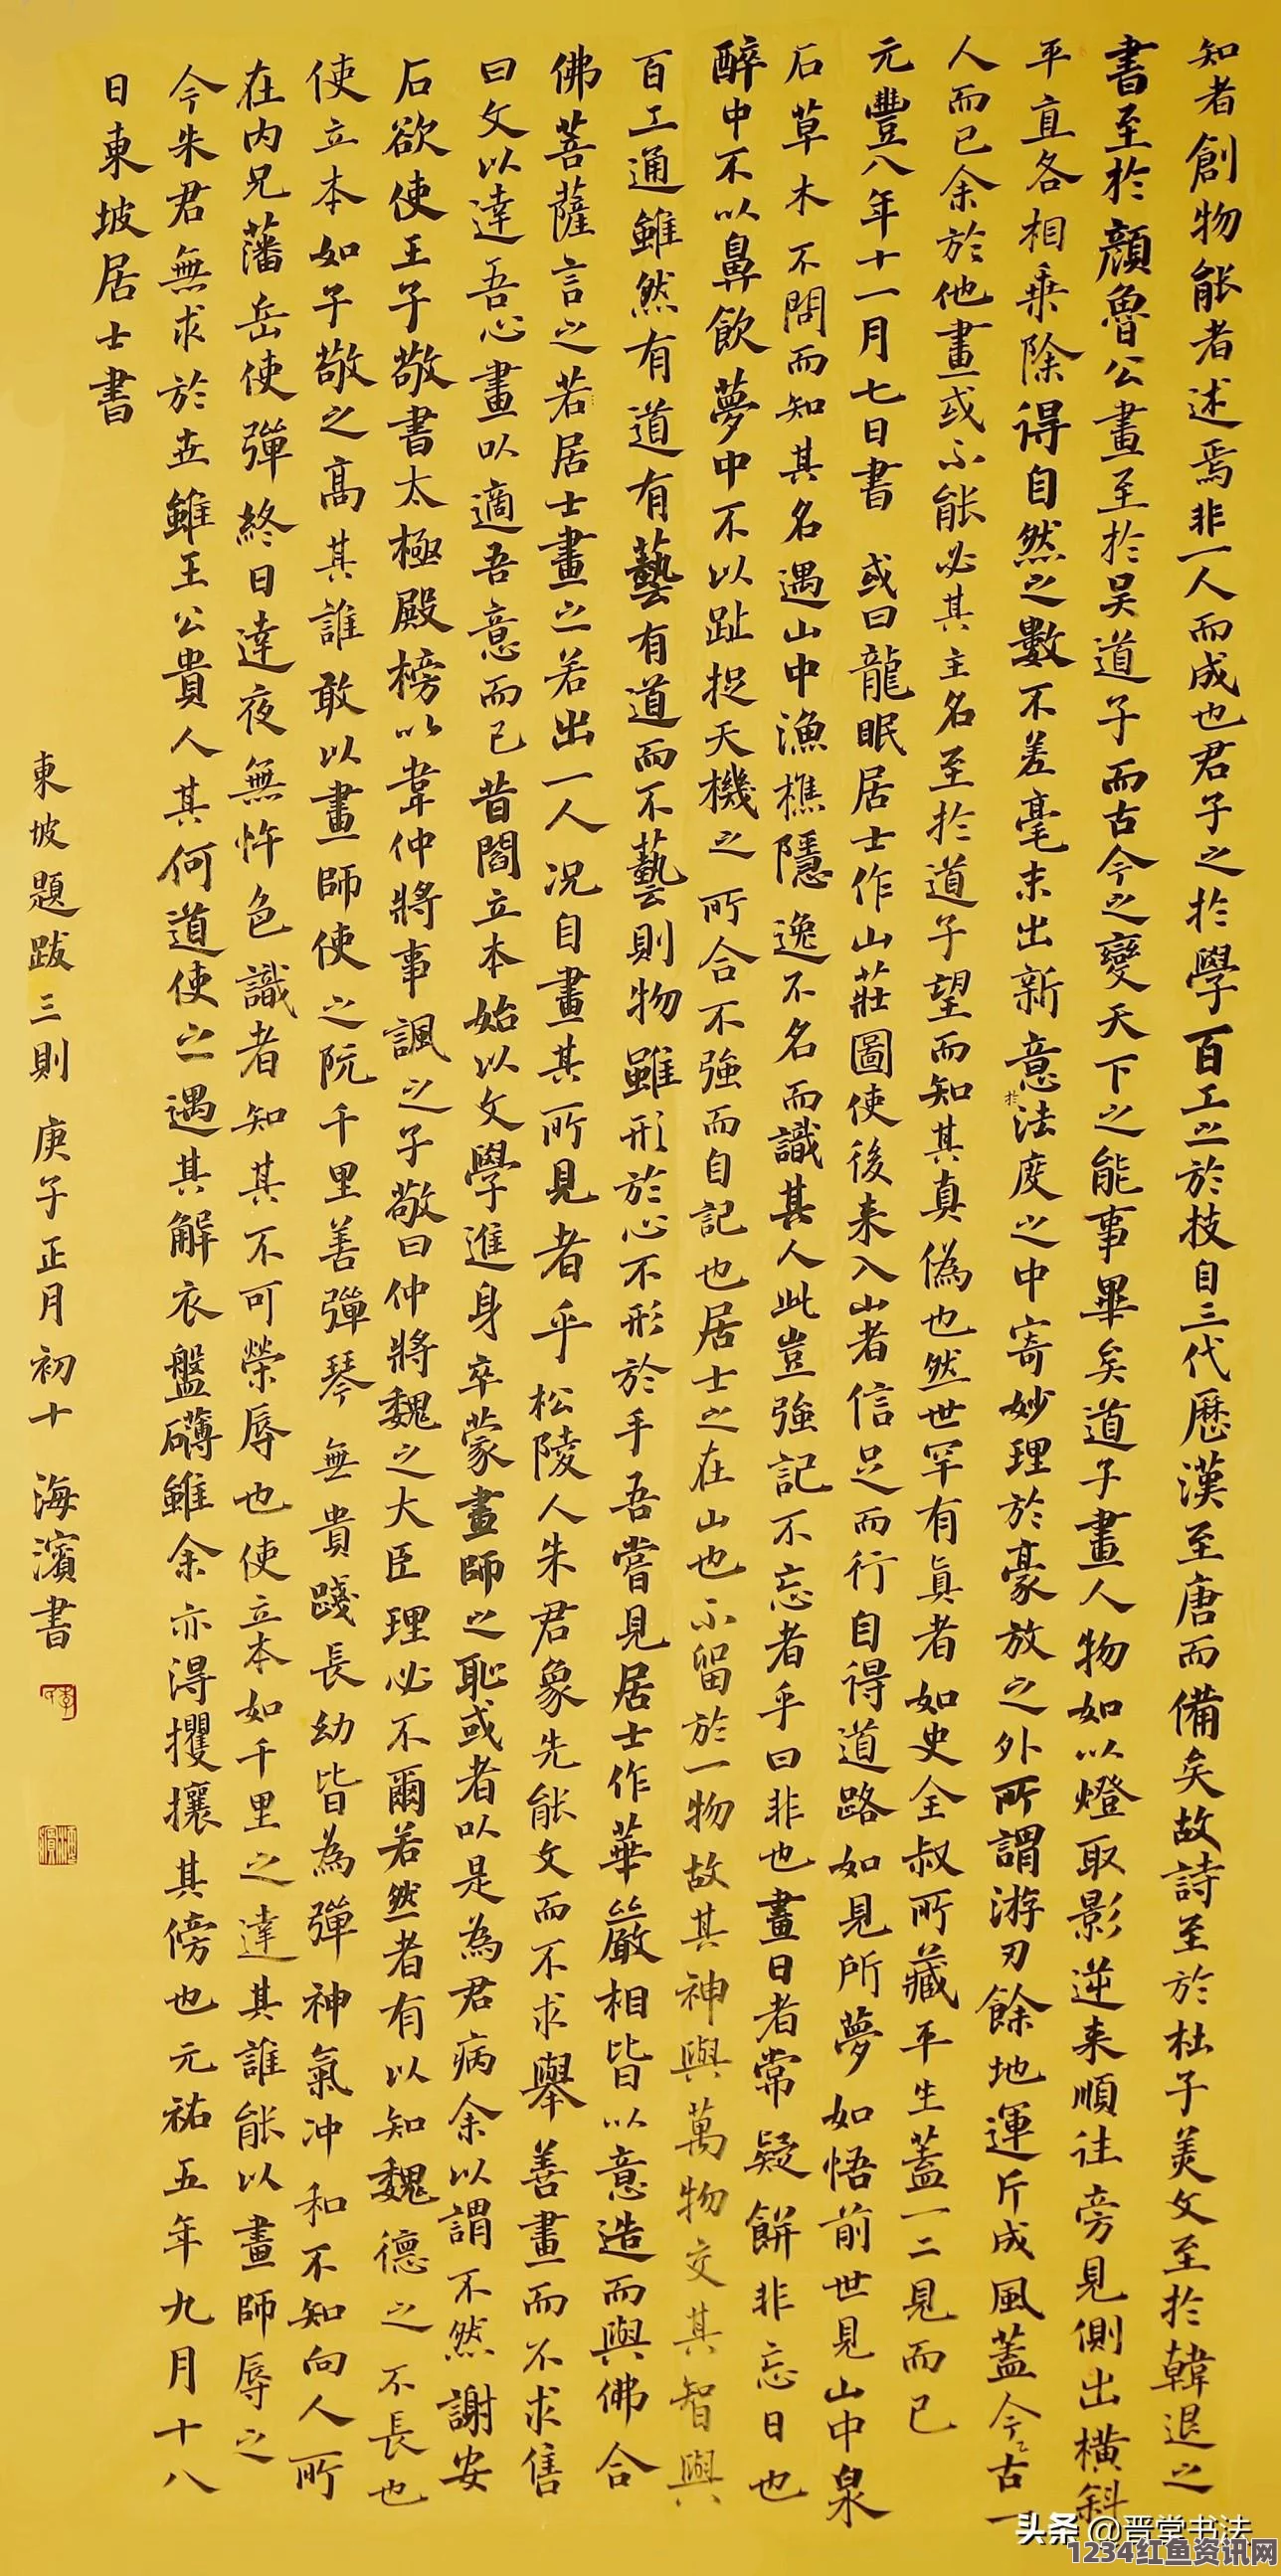 知者創物能者述焉非一人而成也君子之於學百工之於技自三代歷漢至唐而備矣故詩至於杜子美文至於韓退之
書至於顏魯公畫至於吴道子而古今之變天下之能事畢矣道子畫人物如以燈取影逆来順往旁見側出橫斜
平直各相乗除得自然之數不差毫末出新意於法度之中寄妙理於豪放之外所謂游刃餘地運斤成風蓋今古一
人而已余於他畫或不能必其主名至於道子望而知其真偽也然世罕有真者如史全叔所藏平生蓋一二見而已
元豐八年十一月七日書 或曰龍眠居士作山莊圖使後来入山者信足而行自得道路如見所夢如悟前世見山中泉
石草木不問而知其名遇山中漁樵隱逸不名而識其人此豈強記不忘者乎曰非也畫日者常疑餅非忘日也
醉中不以鼻飲夢中不以趾捉天機之所合不強而自記也居士之在山也不留於一物故其神與萬物交其智與
百工通雖然有道有藝有道而不藝則物雖形於心不形於手吾嘗見居士作華嚴相皆以意造而與佛合
佛菩薩言之若居士畫之若出一人况自畫其所見者乎 松陵人朱君象先能文而不求舉善畫而不求售
曰文以達吾心畫以適吾意而已昔閻立本始以文學進身卒蒙畫師之恥或者以是為君病余以謂不然謝安
石欲使王子敬書太極殿榜以韋仲將事諷之子敬曰仲將魏之大臣理必不爾若然者有以知魏德之不長也
使立本如子敬之高其誰敢以畫師使之阮千里善彈琴無貴賤長幼皆為彈神氣冲和不知向人所
在内兄藩岳使彈終日達夜無忤色識者知其不可榮辱也使立本如千里之達其誰能以畫師辱之
今朱君無求於世雖王公貴人其何道使之遇其解衣盤礴雖余亦得攫攘其傍也元祐五年九月十八
日東坡居士書
東坡題跋三則 庚子正月初十 海濱書
头条 @晋堂书法
1234红鱼资讯网